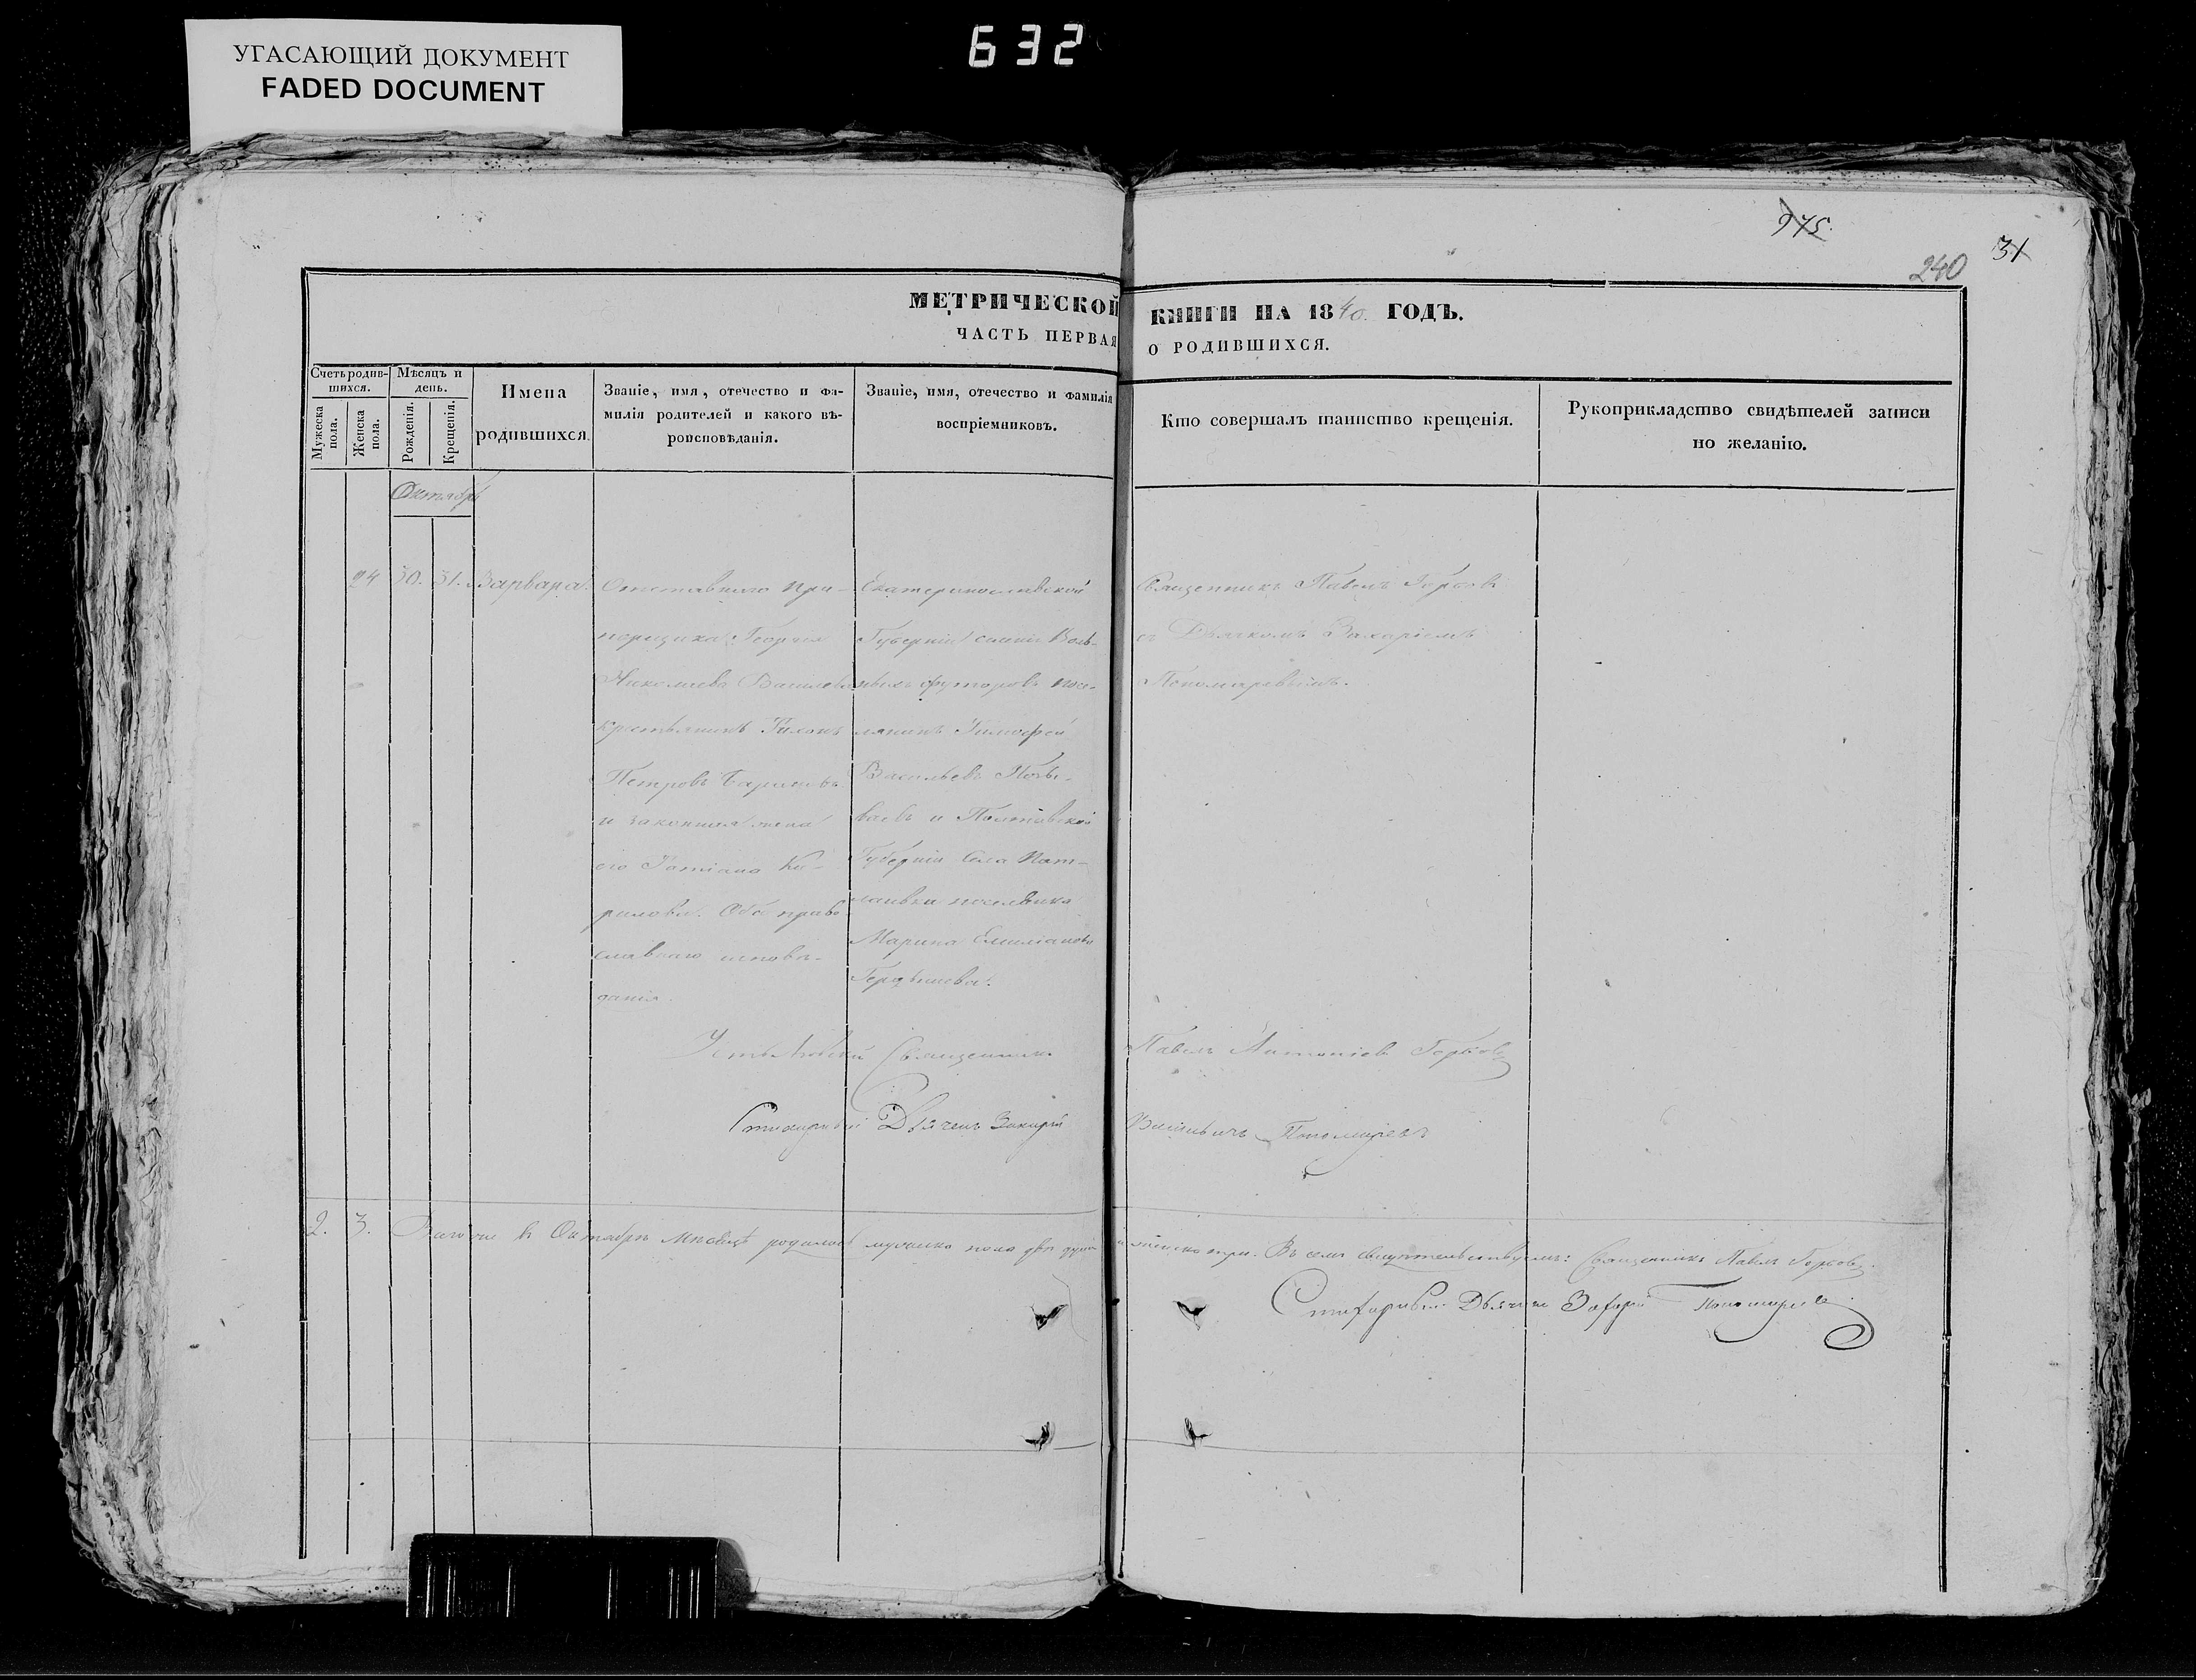 УГАСАЮЩИЙ ДОКУМЕНТ
FADED DOCUMENT
632
975.
240
31
МЕТРИЧЕСКОЙ КНИГИ НА 1840. ГОДЪ.
ЧАСТЬ ПЕРВАЯ О РОДИВШИХСЯ.
Счетъ родив-
шихся.
Мужеска
пола.
Женска
пола.
Мѣсяцъ и
день.
Рожденія.
Крещенія.
Имена
родившихся
Званіе, имя, отечество и фа-
милія родителей и какого вѣ-
роисповѣданія.
Званіе, имя, отечество и фамилія
воспріемниковъ.
Кто совершалъ таинство крещенія.
Рукоприкладство свидѣтелей записи
по желанію.
Октябрь
24 30. 31. Варвара.
Отставнаго пра-
порщика Георгія
Николаева
крестьянинъ
Петровъ
и законная жена
его Татіана Ки-
рилова. Оба право
славнаго исповѣ-
данія.
Екатеринославской
Губерніи
хуторовъ посе-
лянинъ Тимофей
Васильевъ
и Полтавской
Губерніи Села
поселянка
Марина Емиліанова
Священникъ Павелъ Горбовъ
съ Дьячкомъ Захаріемъ
Пономаревымъ.
Священникъ Павелъ Антоніевъ Горбовъ
Стихарный Дьячекъ Захарій Пономаревъ
2. 3. Итого въ Октябрѣ Мѣсяцѣ родилось мужеска пола двѣ души и женска три. Въ семъ свидѣтельствуемъ: Священникъ Павелъ Горбовъ.
Стихарный Дьячекъ Захарій Пономаревъ